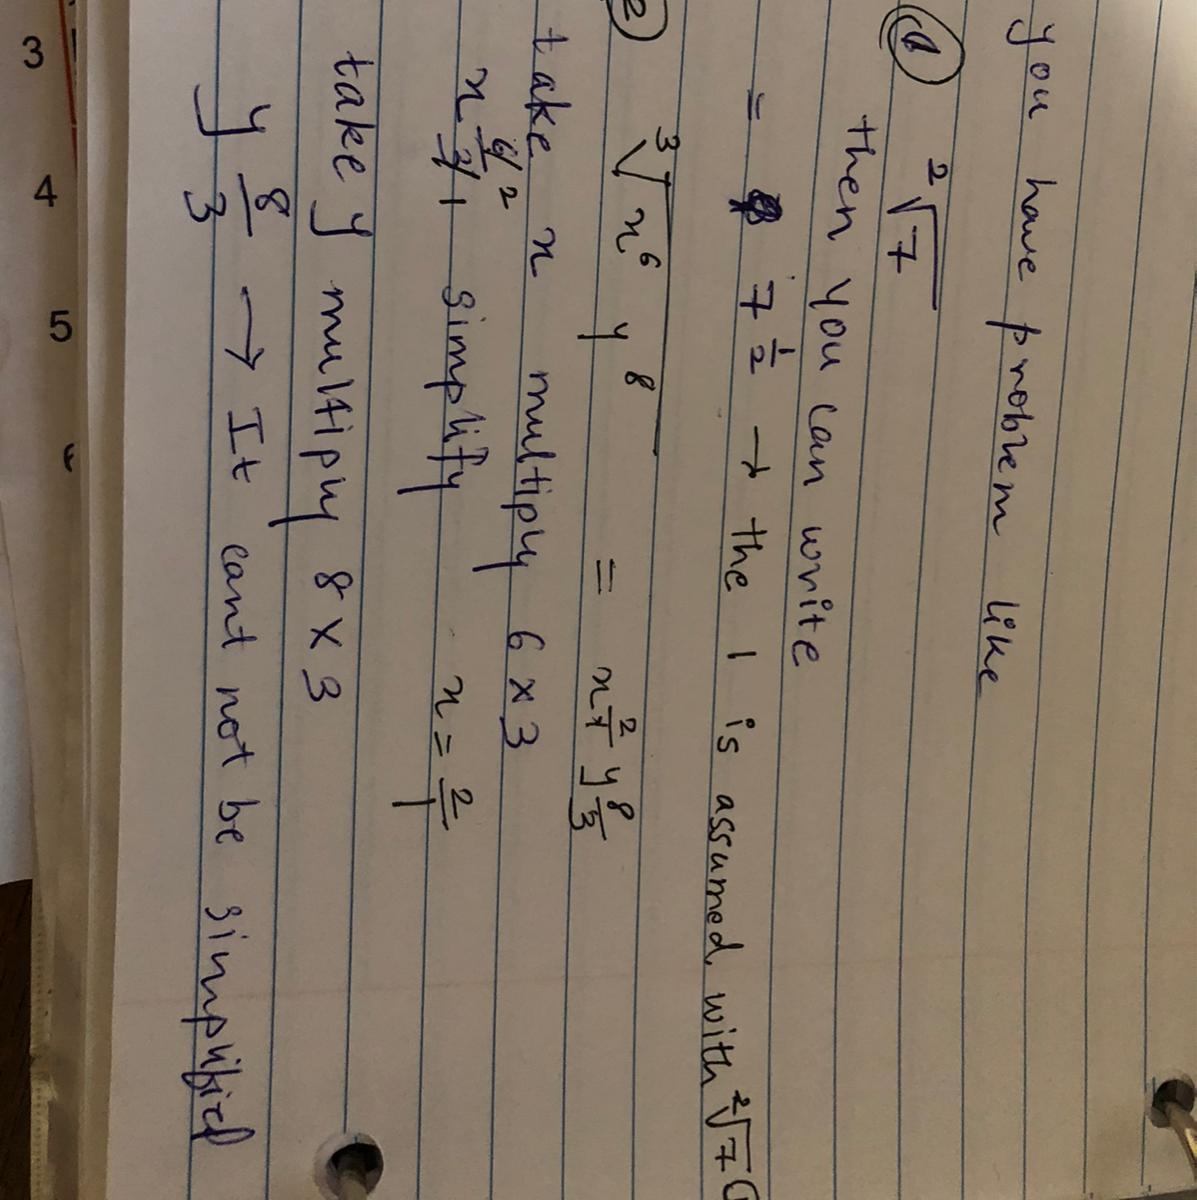 you have problem like
① ²√7
then you can write
= 7 1/2 → the 1 is assumed with ²√7
② ³√x⁶ y⁸ = x 2/1 y 8/3
take x multiply 6 x 3
x 6/3 2 1 simplify x = 2/1
take y multiply 8 x 3
y 8/3 → It cant not be simplified
3
4
5